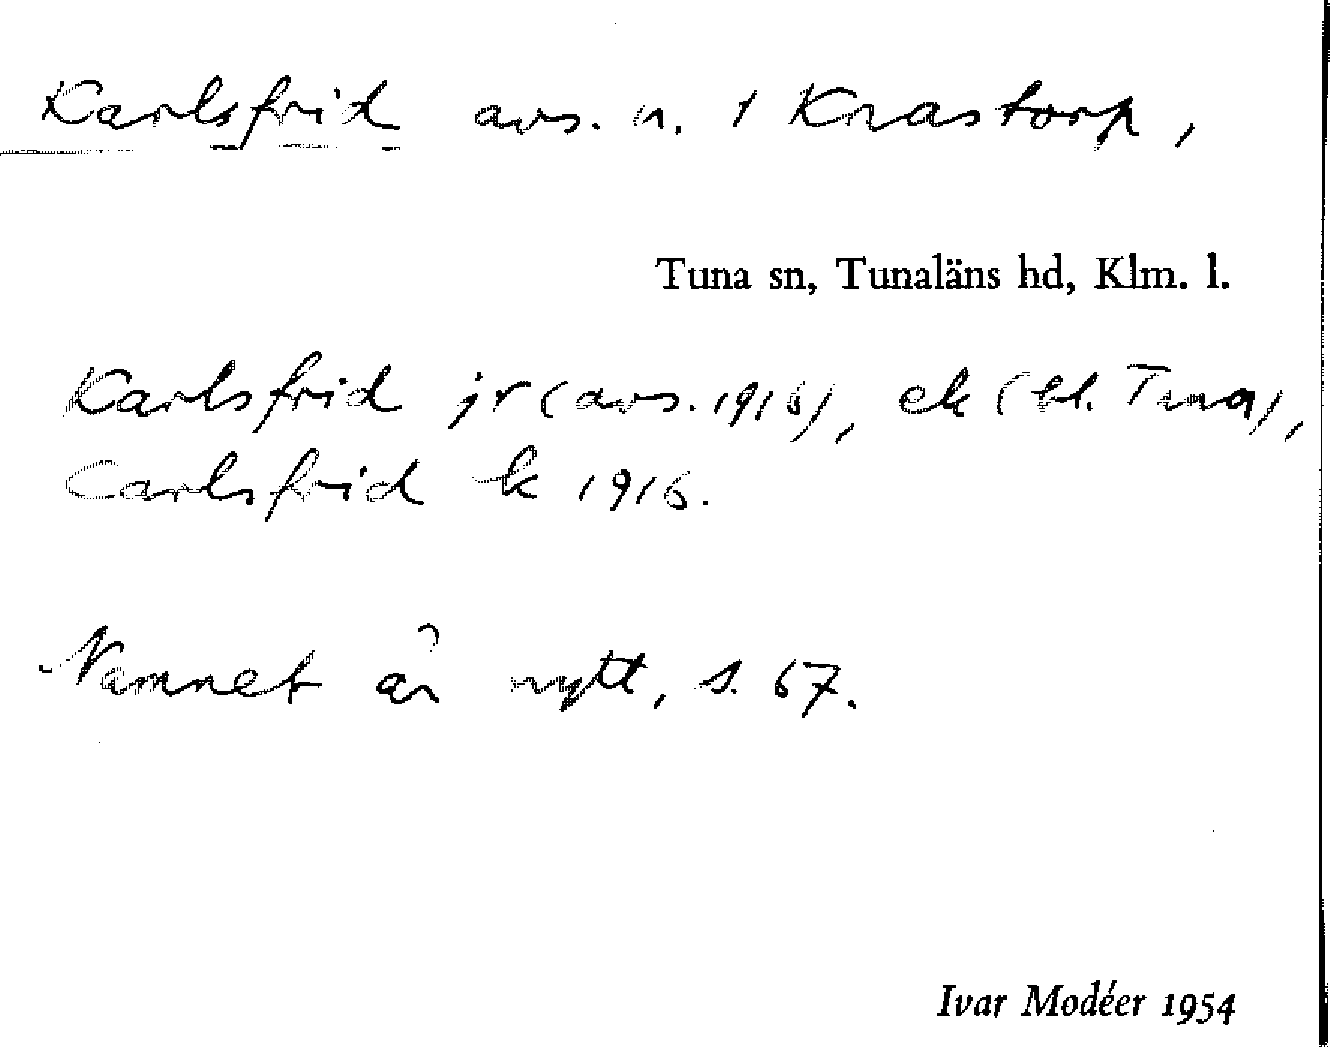 Karlsfrid avs. n. 1 Krastorp,
Tuna sn, Tunaläns hd, Klm. l.
Karlsfrid jr (avs. 1916), ek (bl. Tuna),
Carlsfrid k 1916.
Namnet är nytt, s. 67.
Ivar Modéer 1954